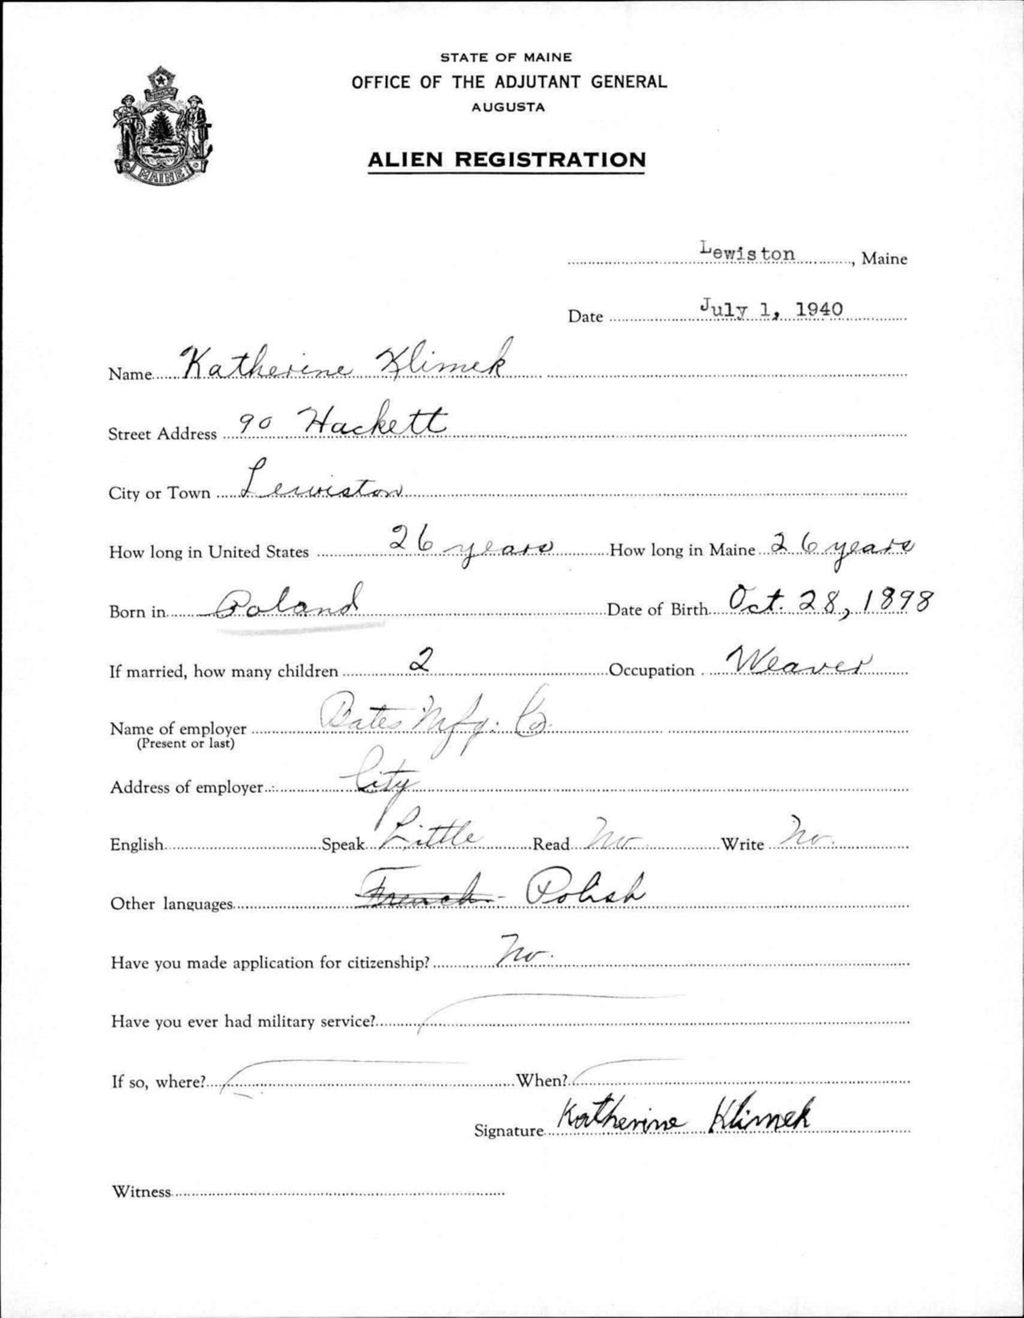 STATE OF MAINE
OFFICE OF THE ADJUTANT GENERAL
AUGUSTA
ALIEN REGISTRATION
MAINE
Lewiston, Maine
Date July 1, 1940
Name Katherine Klimek
Street Address 90 Hackett
City or Town Lewiston
How long in United States 26 years How long in Maine 26 years
Born in Poland Date of Birth Oct. 28, 1898
If married, how many children 2 Occupation Weaver
Name of employer Bates Mfg. Co.
(Present or last)
Address of employer City
English Speak Little Read No Write No.
Other languages French - Polish
Have you made application for citizenship? No.
Have you ever had military service?
If so, where? When?
Signature Katherine Klimek
Witness